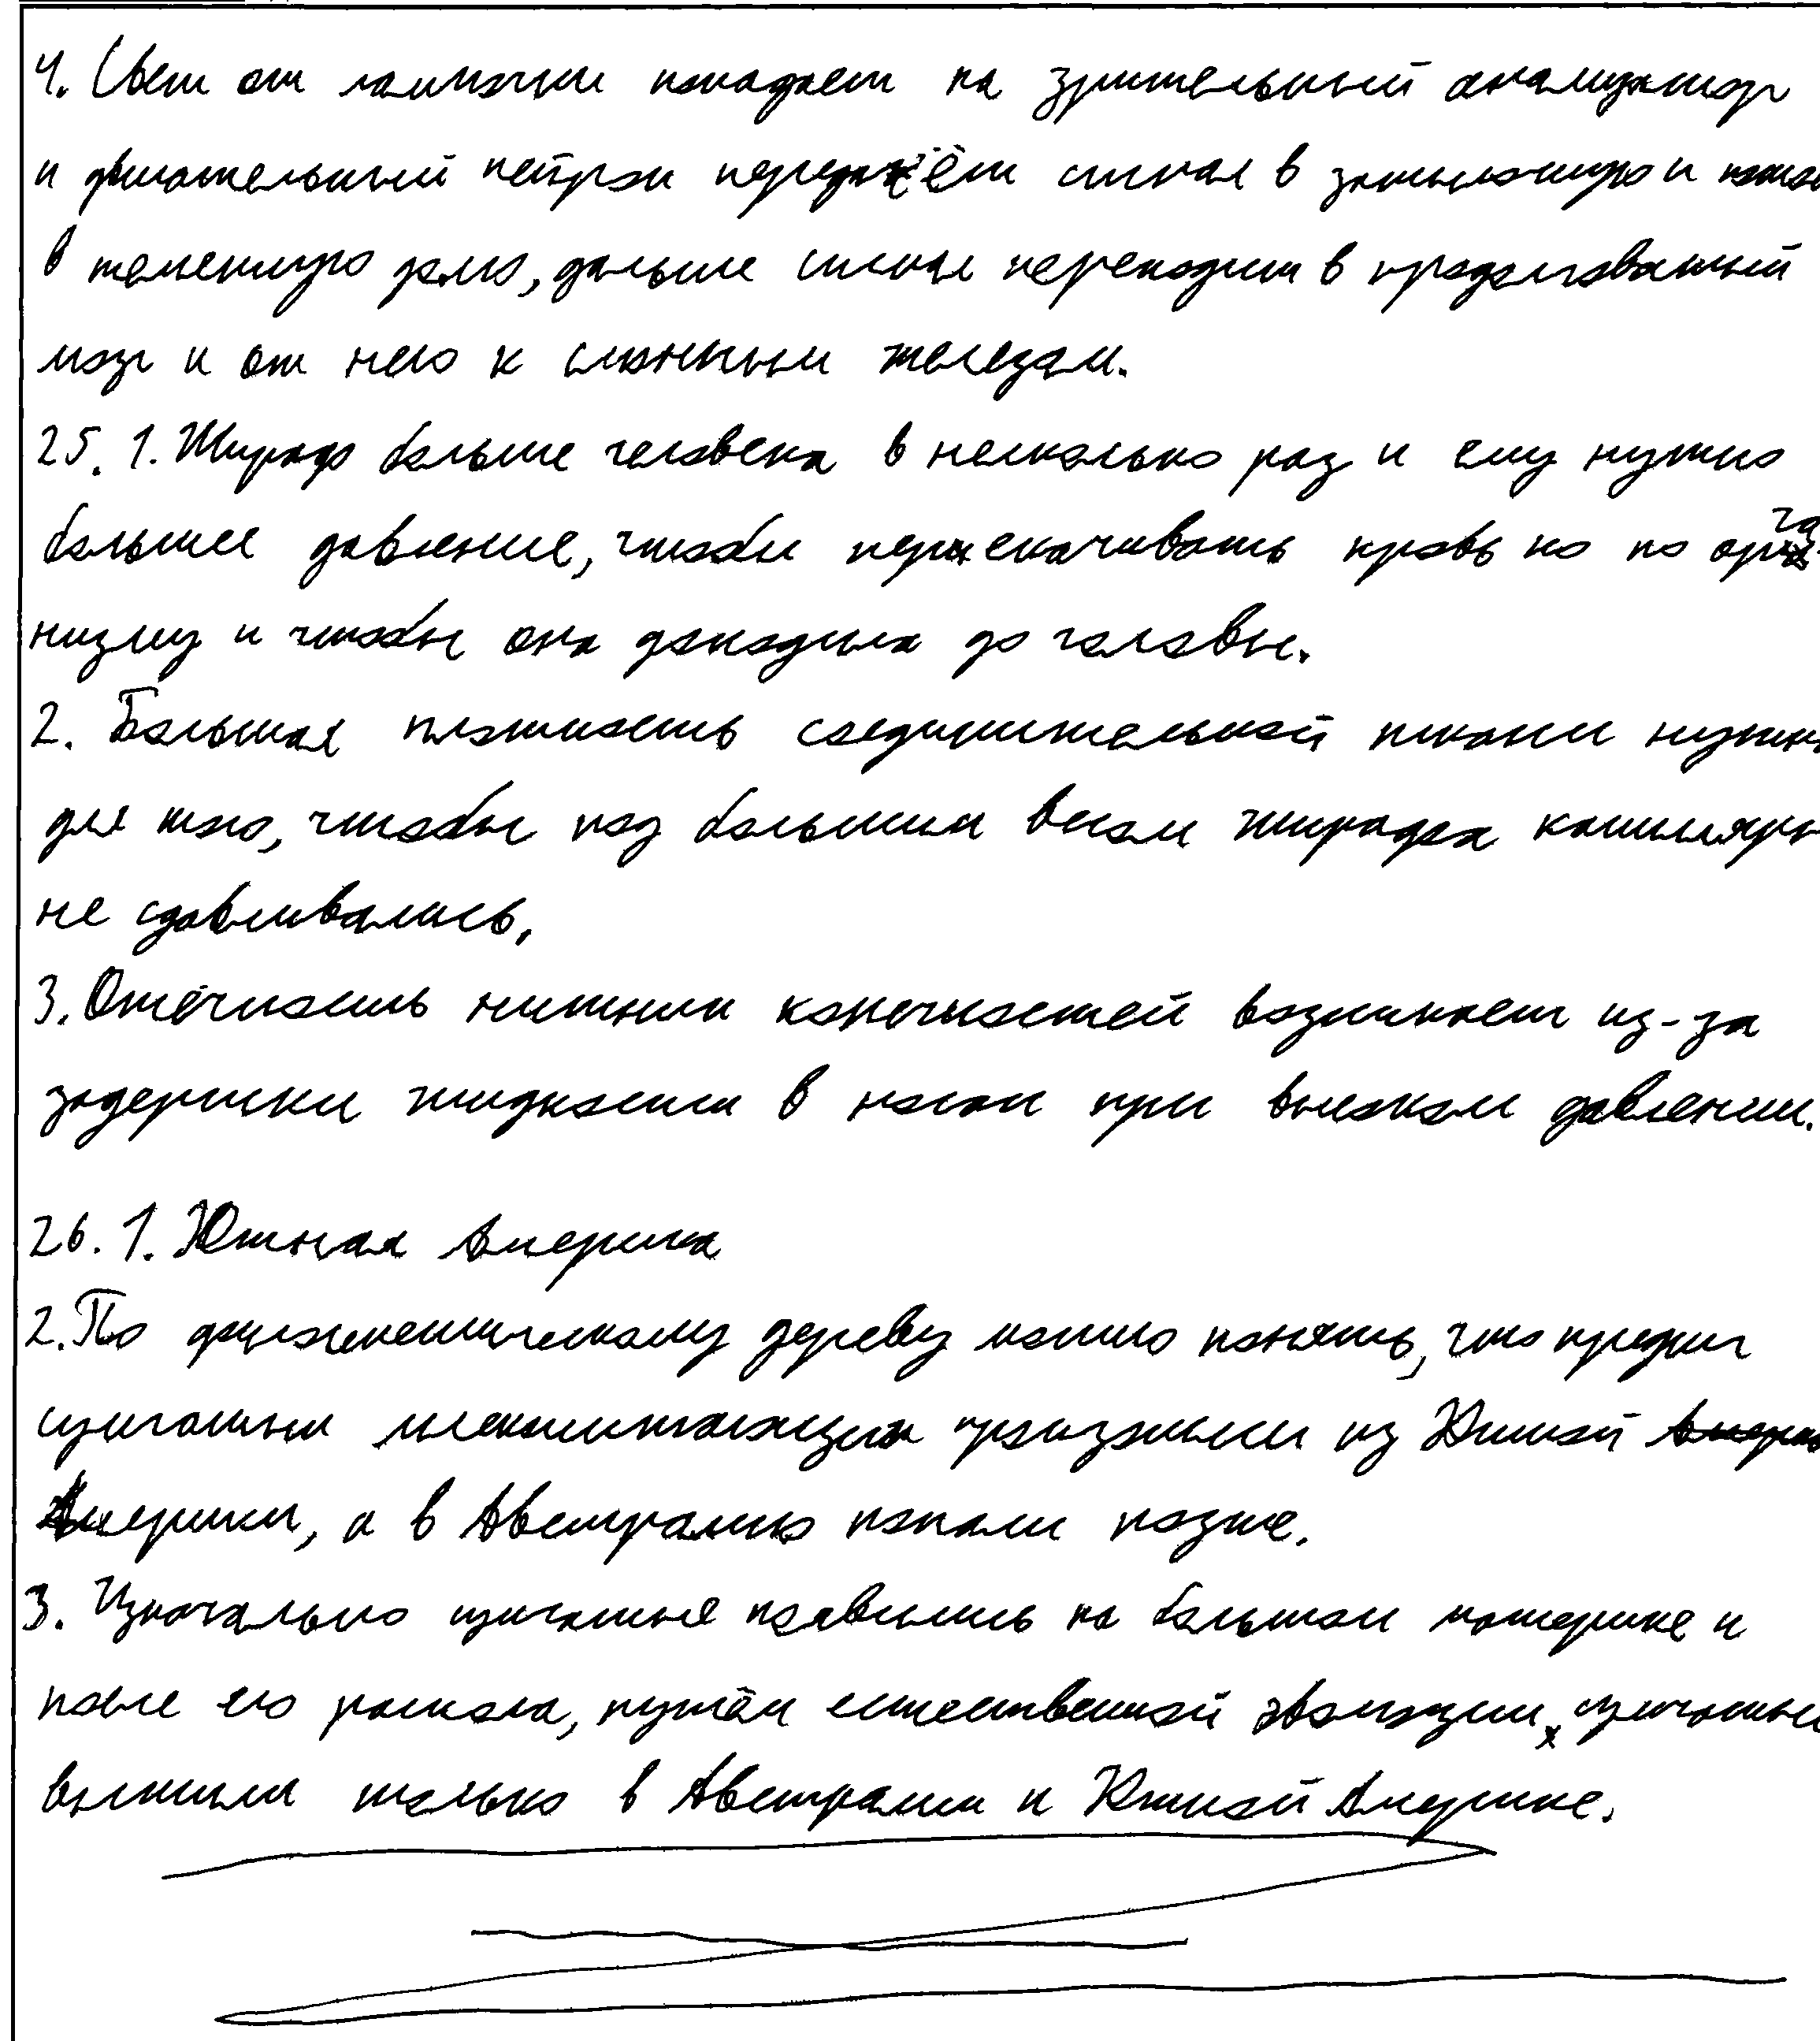 4. Свет от лампочки попадает на зрительный анализатор
и двигательный нейрон передаёт сигнал в затылочную и
в теменную долю, дальше сигнал переходит в продолговатый
мозг и от него к слюнным железам.
25. 1. Жираф больше человека в несколько раз и ему нужно
большее давление, чтобы перекачивать кровь по орга-
низму и чтобы она доходила до головы.
2. Большая плотность соединительной ткани нужна
для того, чтобы под большим весом жирафа капилляры
не сдавливались.
3. Отёчность нижних конечностей возникает из-за
задержки жидкости в ногах при высоком давлении.
26. 1. Южная Америка
2. По филогенетическому дереву можно понять, что предки
сумчатых млекопитающих произошли из Южной
Америки, а в Австралию попали позже.
3. Изначально сумчатые появились на большом материке и
после его раскола, путём естественной эволюции сумчатые
выжили только в Австралии и Южной Америке.